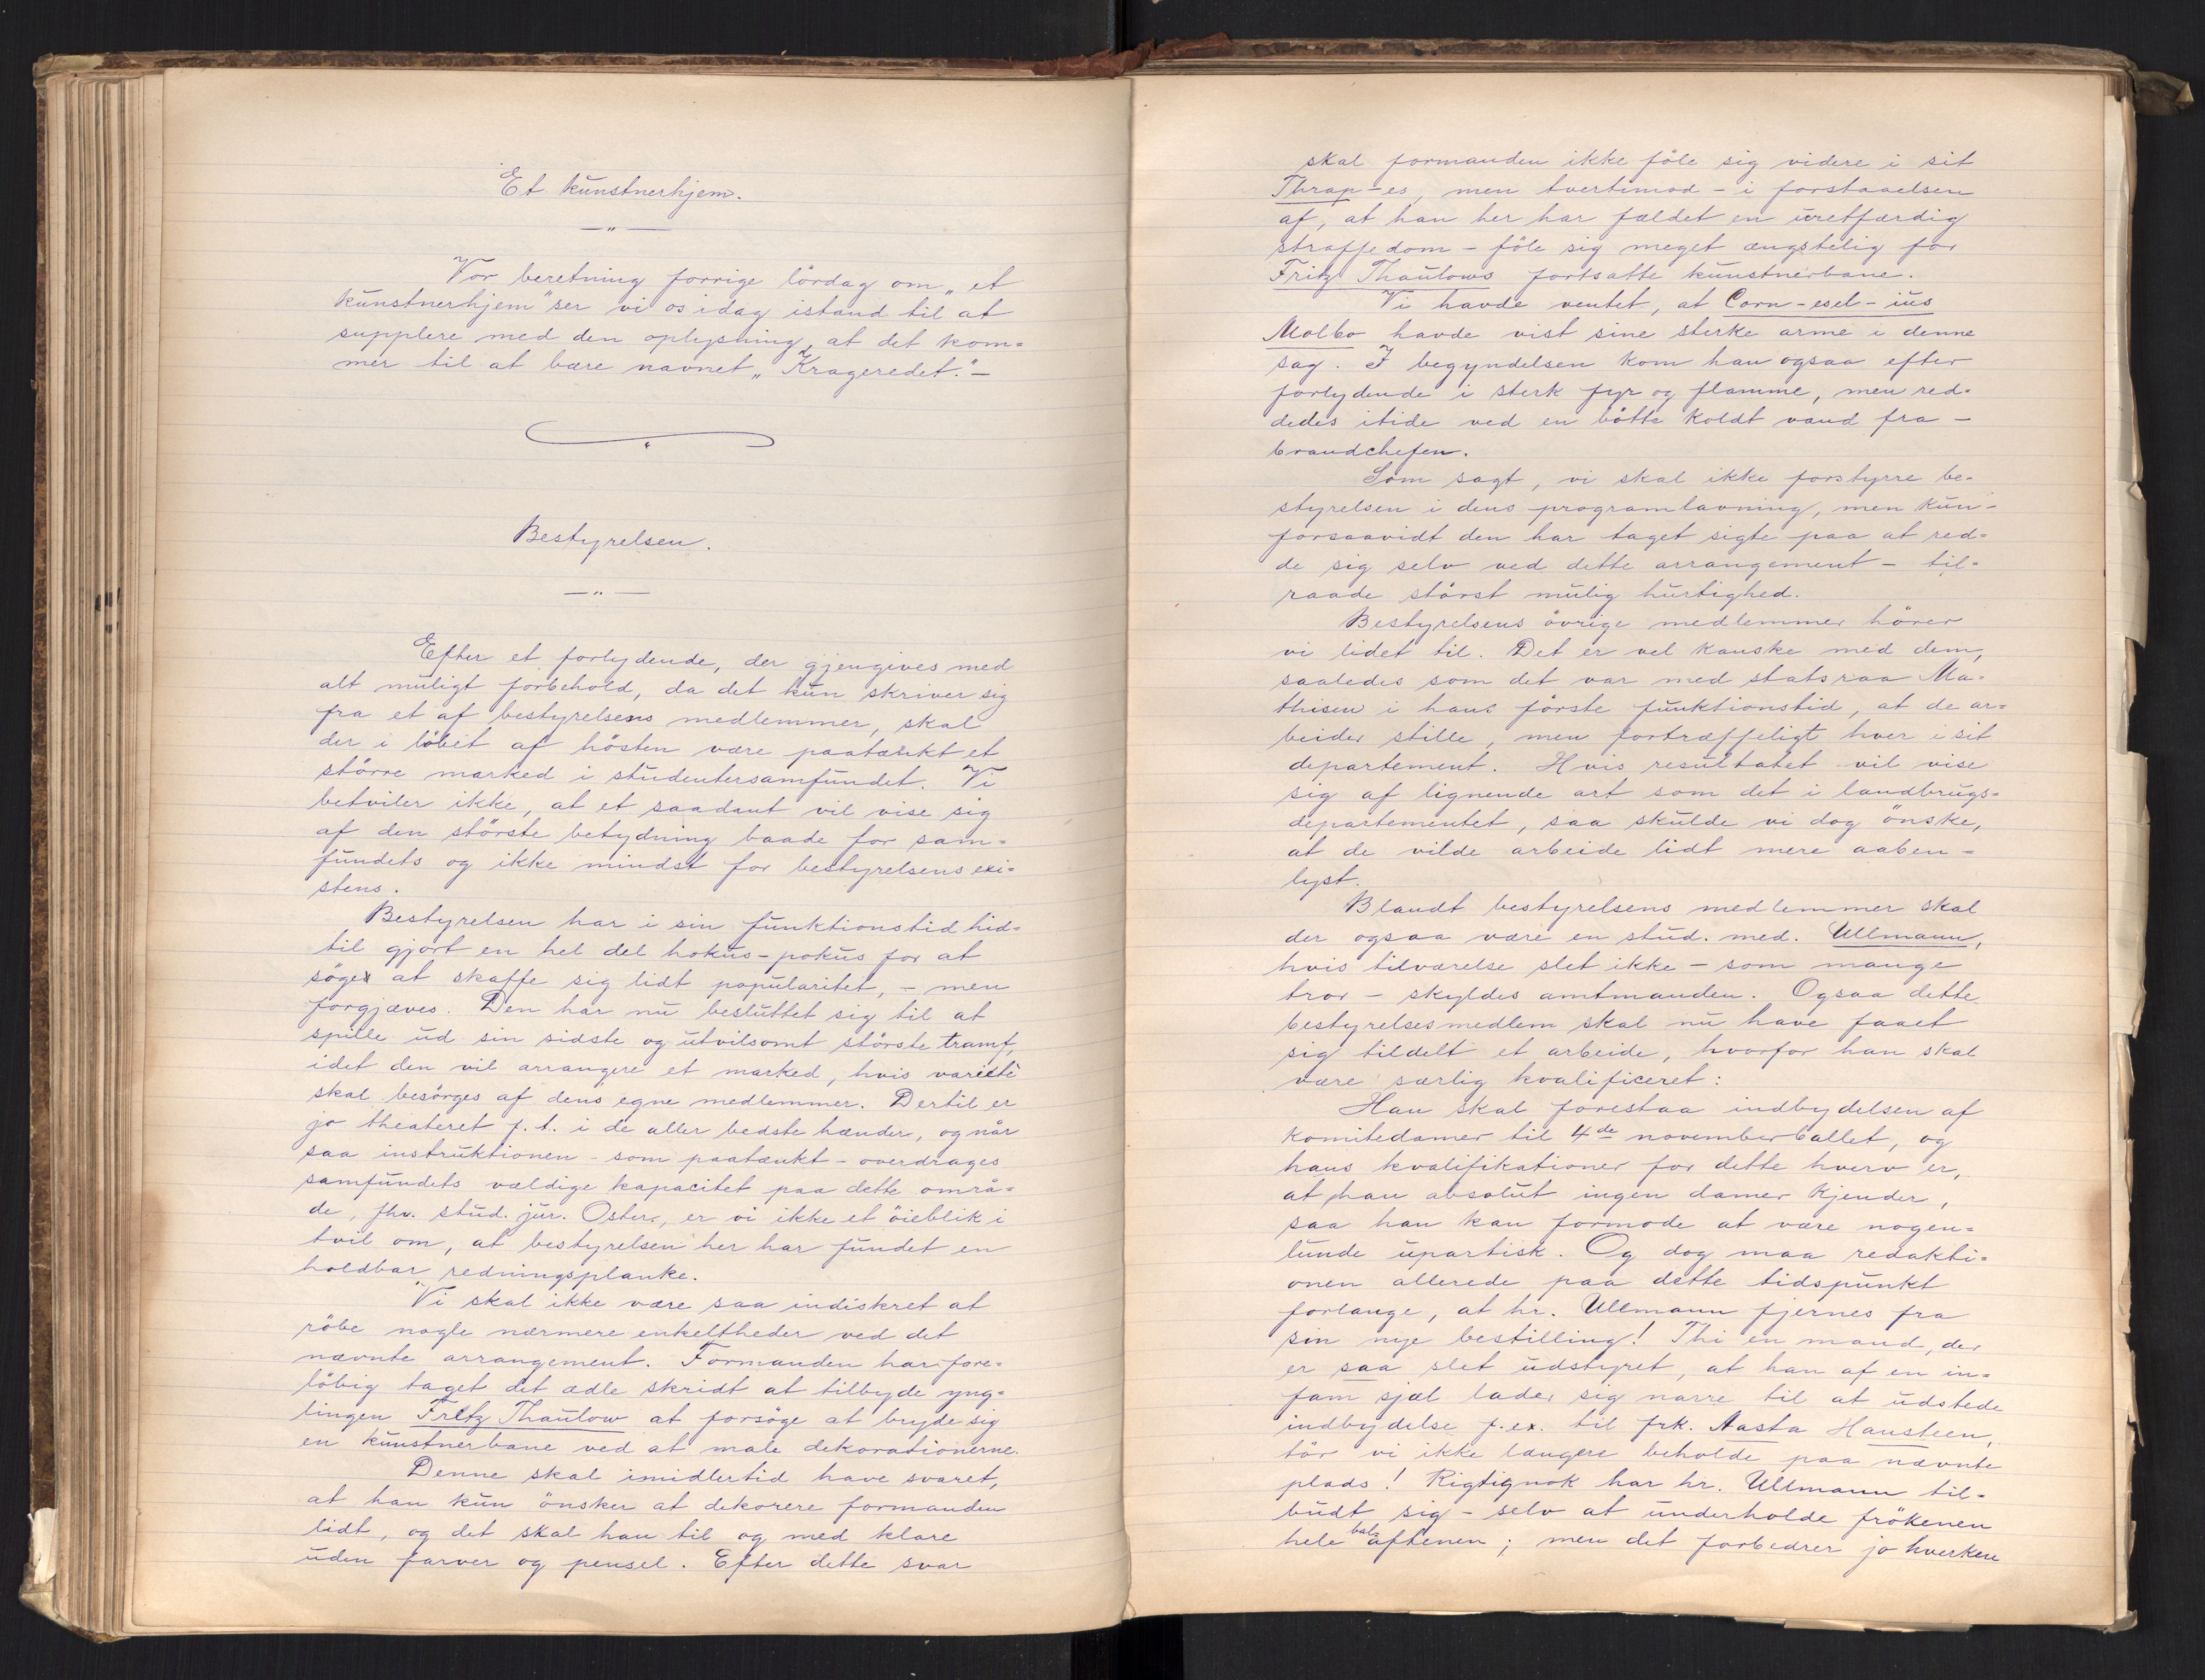 Et kunstnerhjem.
— " —
Vor beretning forrige lördag om „et
kunstnerhjem" ser vi os idag istand til at
supplere med den oplysning, at det kom=
mer til at bære navnet „Krageredet." –
Bestyrelsen.
— " —
Efter et forlydende, der gjengives med
alt muligt forbehold, da det kun skriver sig
fra et af bestyrelsens medlemmer, skal
der i löbet af hösten være paatænkt et
större marked i studentersamfundet. Vi
betviler ikke, at et saadant vil vise sig
af den störste betydning baade for sam=
fundets og ikke mindst for bestyrelsens exi=
stens.
Bestyrelsen har i sin funktionstid hid=
til gjort en hel del hokus-pokus for at
söge at skaffe sig lidt popularitet, – men
forgjæves. Den har nu besluttet sig til at
spille ud sin sidste og utvilsomt störste tramf,
idet den vil arrangere et marked, hvis varieté
skal besörges af dens egne medlemmer. Dertil er
jo theateret f. t. i de aller bedste hænder, og når
saa instruktionen – som paatænkt – overdrages
samfundets vældige kapacitet paa dette områ=
de, fhv. stud. jur. Oster, er vi ikke et öieblik i
tvil om, at bestyrelsen her har fundet en
holdbar redningsplanke.
Vi skal ikke være saa indiskret at
röbe nogle nærmere enkeltheder ved det
nævnte arrangement. Formanden har fore=
löbig taget det ædle skridt at tilbyde yng=
lingen Fritz Thaulow at forsöge at bryde sig
en kunstnerbane ved at male dekorationerne.
Denne skal imidlertid have svaret,
at han kun önsker at dekorere formanden
lidt, og det skal han til og med klare
uden farver og pensel. Efter dette svar
skal formanden ikke föle sig videre i sit
Thrap-es, men tvertimod – i forstaaelsen
af, at han her har fældet en uretfærdig
straffedom – föle sig meget ængstelig for
Fritz Thaulows fortsatte kunstnerbane.
Vi havde ventet, at Corn-esel-ius
Molbo havde vist sine sterke arme i denne
sag. I begyndelsen kom han ogsaa efter
forlydende i sterk fyr og flamme, men red=
dedes itide ved en bötte koldt vand fra –
brandchefen.
Som sagt, vi skal ikke forstyrre be=
styrelsen i dens programlavning, men kun –
forsaavidt den har taget sigte paa at red=
de sig selv ved dette arrangement – til=
raade störst mulig hurtighed.
Bestyrelsens övrige medlemmer hörer
vi lidet til. Det er vel kanske med dem,
saaledes som det var med statsraa Ma=
thisen i hans förste funktionstid, at de ar=
beider stille, men fortræffeligt hver i sit
departement. Hvis resultatet vil vise
sig af lignende art som det i landbrugs=
departementet, saa skulde vi dog önske,
at de vilde arbeide lidt mere aaben=
lyst.
Blandt bestyrelsens medlemmer skal
der ogsaa være en stud. med. Ullmann,
hvis tilværelse slet ikke – som mange
tror – skyldes amtmanden. Ogsaa dette
bestyrelsesmedlem skal nu have faaet
sig tildelt et arbeide, hvorfor han skal
være særlig kvalificeret:
Han skal forestaa indbydelsen af
komitedamer til 4de novemberballet, og
hans kvalifikationer for dette hverv er,
at han absolut ingen damer kjender,
saa han kan formode at være nogen=
lunde upartisk. Og dog maa redakti=
onen allerede paa dette tidspunkt
forlange, at hr. Ullmann fjernes fra
sin nye bestilling! Thi en mand, der
er saa slet udstyret, at han af en in=
fam sjæl lader sig narre til at udstede
indbydelse f.ex. til frk. Aasta Hansteen,
tör vi ikke længere beholde paa nævnte
plads! Rigtignok har hr. Ullmann til=
budt sig – selv at underholde frökenen
hele balaftenen; men det forbedrer jo hverken